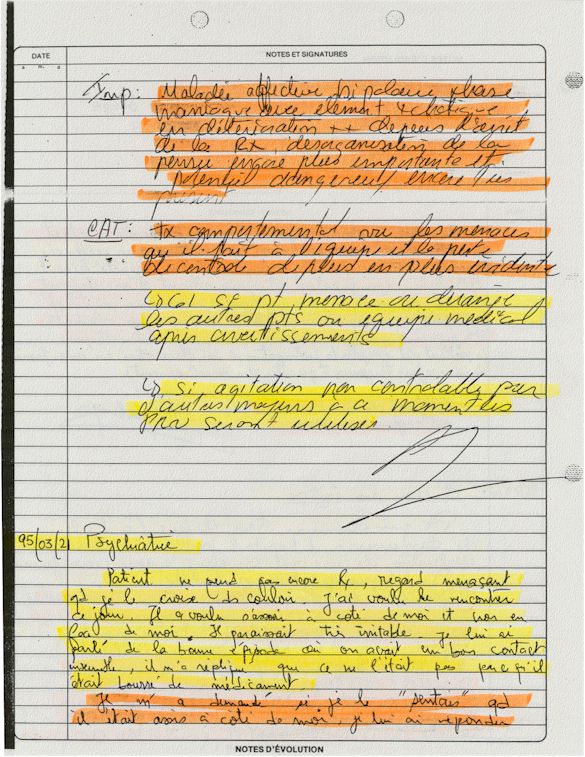 DATE
NOTES ET SIGNATURES
a. m. d.
Imp: Maladie affective bipolaire phase
maniaque avec élément
en détérioration ++ depuis l'arrêt
de la Rx, désorganisation de la
pensée encore plus importante et
potentiel dangereux encore très
présent
CAT: tx comportemental vu les menaces
qu'il fait à l'équipe et la perte
de contrôle de plus en plus évidente
↳ CI si pt menace ou dérange
les autres pts ou équipe médical
après avertissements
↳ si agitation non controlable par
d'autres moyens à ce moment les
PRN seront utilisés
95/03/21 Psychiatrie
Patient ne prend pas encore Rx, regard menaçant
qd je le croise ds couloir. J'ai voulu le rencontrer
ce jour. Il a voulu s'assoir à coté de moi et non en
face de moi. Il paraissait très irritable. Je lui ai
parlé de la bonne époque où on avait un bon contact
ensemble, il m'a répliqué que ce ne l'était pas parce qu'il
était bourré de médicament.
Il m'a demandé si je le "sentais" qd
il était assis à côté de moi, je lui ai répondu
NOTES D'ÉVOLUTION